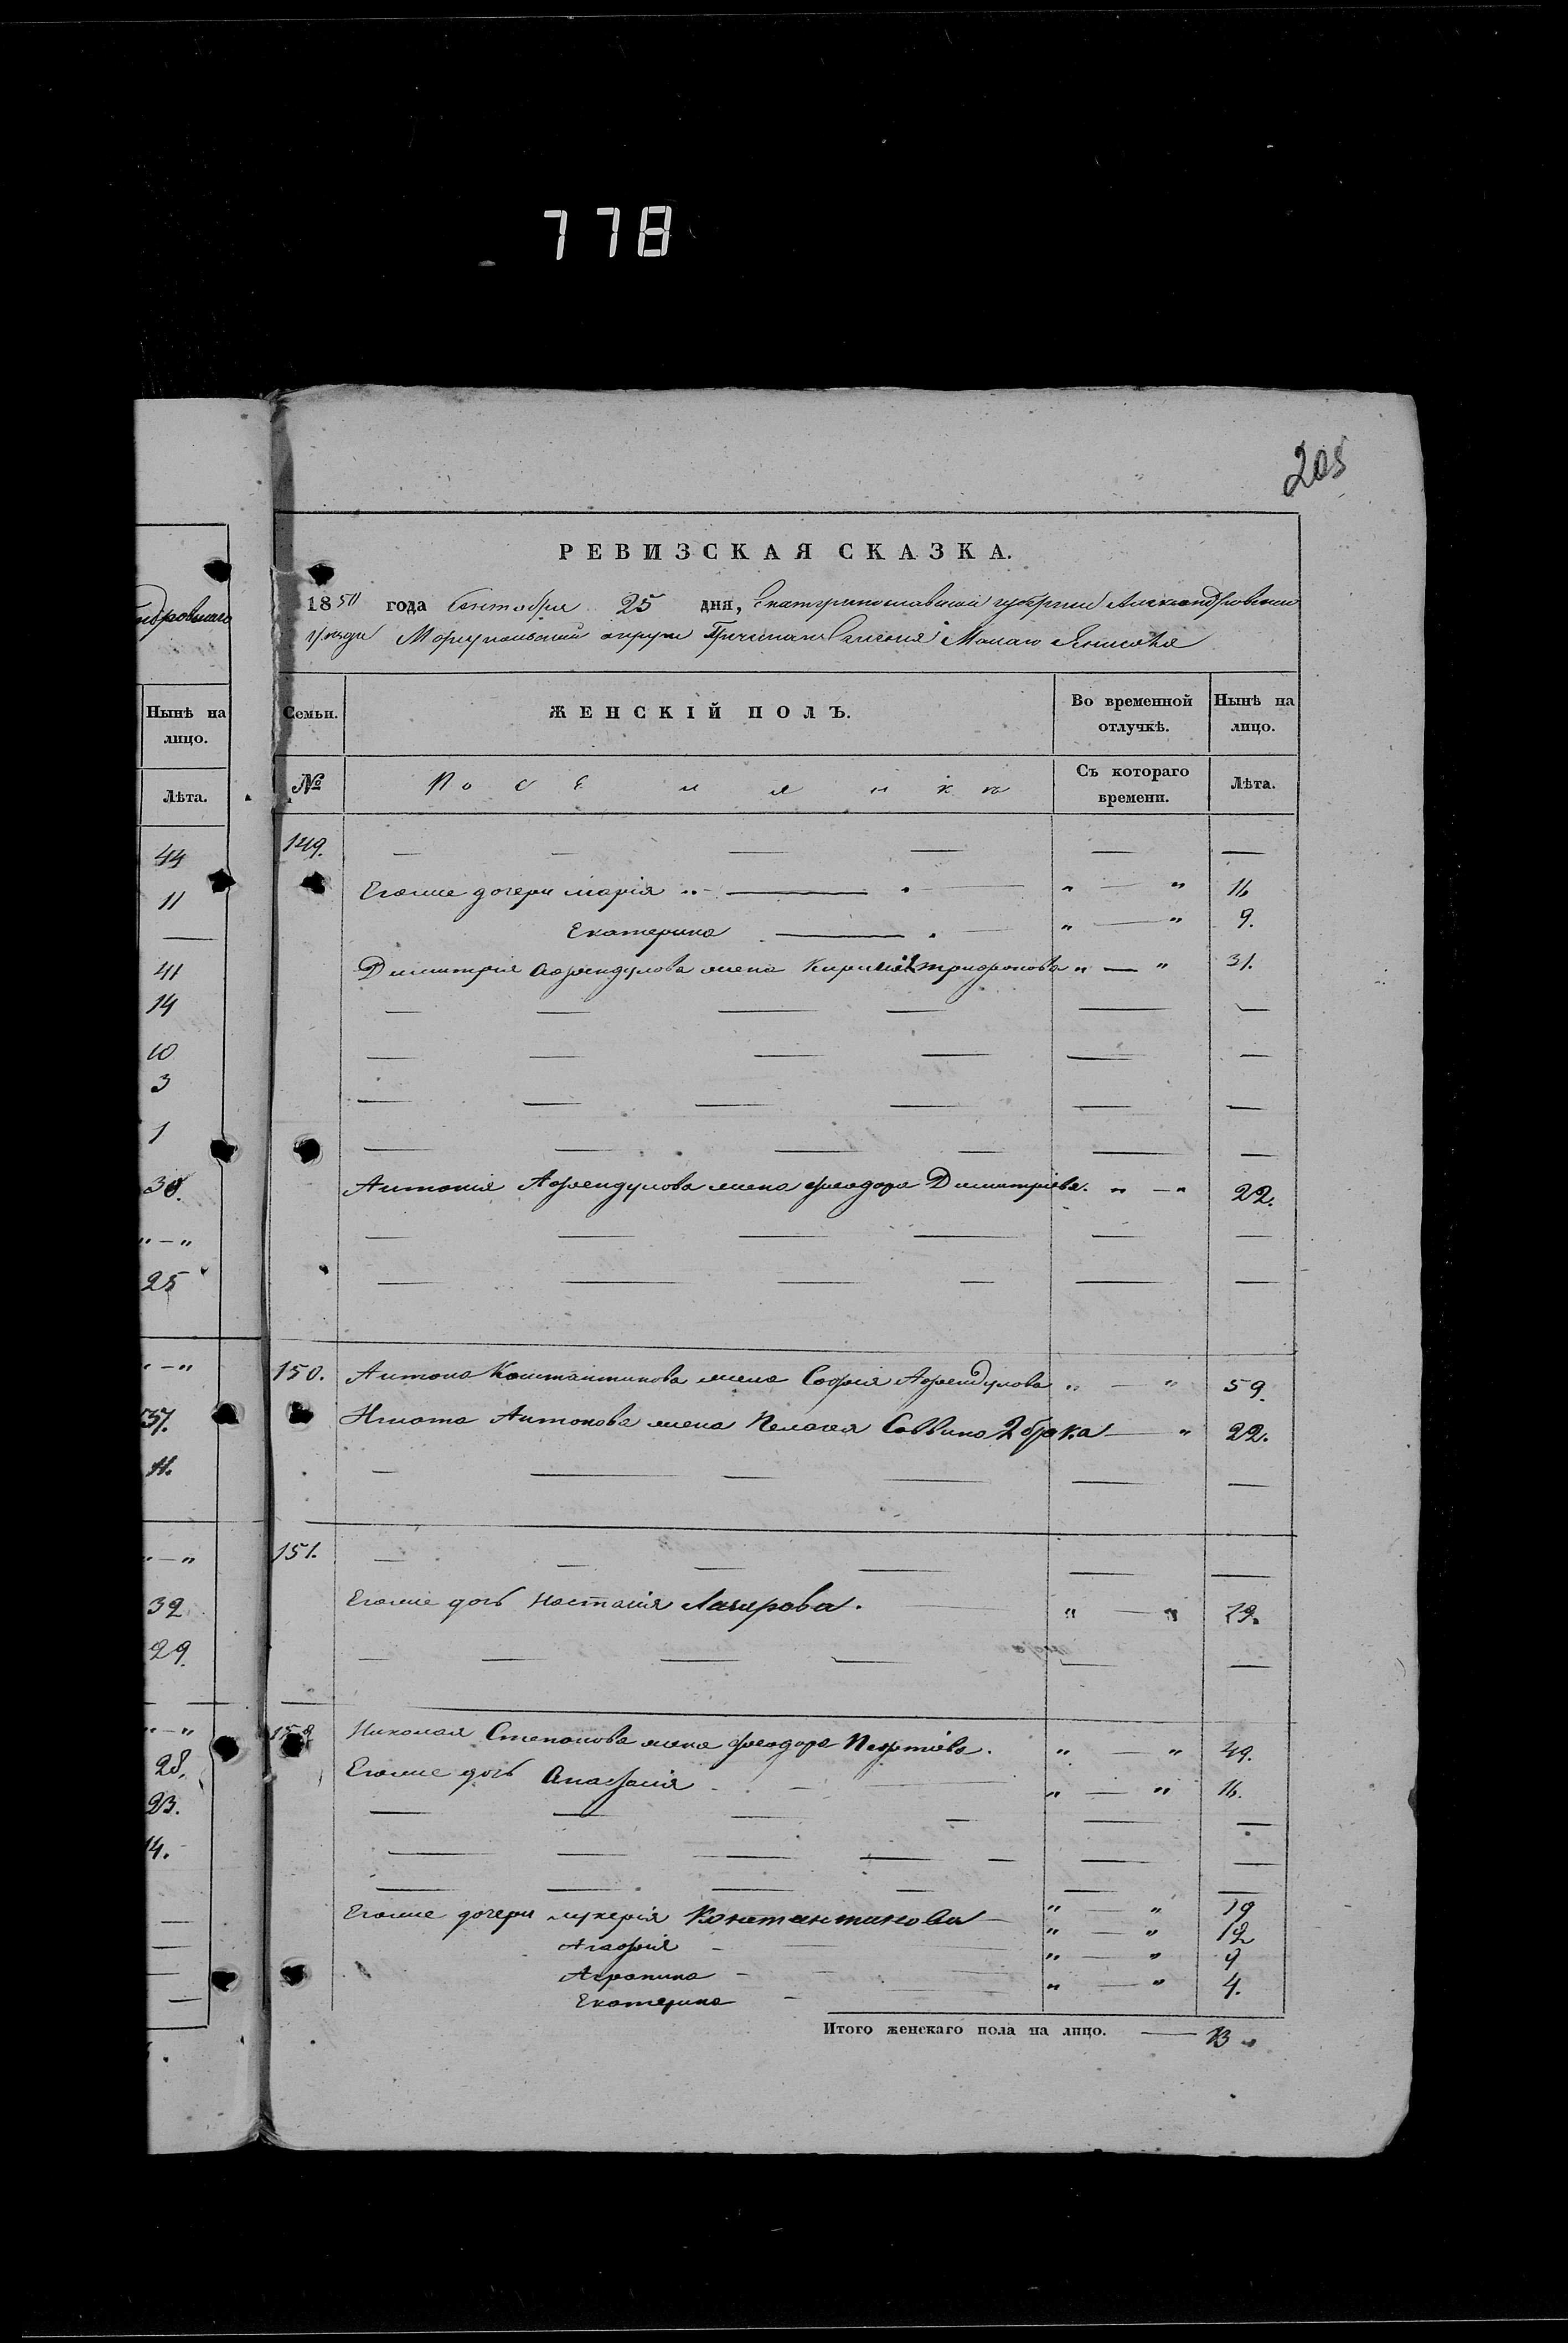 778
205
РЕВИЗСКАЯ СКАЗКА.
1850 года Сентября 25 дня, Екатеринославской губернии Александровского
уезда Мариупольский округа Греческаго Селения Малаго Янисоля
Нынѣ на лицо.
Семьи.
ЖЕНСКІЙ ПОЛЪ.
Во временной отлучкѣ.
Нынѣ на лицо.
Лѣта.
№
Поселянкъ
Съ котораго времени.
Лѣта.
44
11
41
14
10
3
1
30.
25
37.
11.
32
29.
28.
23.
14.
149. — — — — — —
Егоже дочери Марія „ — „ 16
Екатерина „ — „ 9.
Димитрія Афендулова жена „ — „ 31.
— — — — — —
— — — — — —
— — — — — —
— — — — — —
Антонія Афендулова жена Феодора Димитріева. „ — „ 22.
— — — — — —
— — — — — —
150. Антона Константинова жена Софія Афендулова „ — „ 59.
Игната Антонова жена Пелагея Саввина 2 брака — „ 22.
— — — — — —
151. — — — — — —
Егоже дочь Настасія Лазирова. „ — „ 19.
— — — — — —
152 Николая Степанова жена Феодора „ — „ 49.
Егоже дочь Анастасія „ — „ 16.
— — — — — —
— — — — — — —
— — — — — —
Егоже дочери Лукерія Константинова „ — „ 19
Агафія „ — „ 12
Агрипина „ — „ 9
Екатерина „ — „ 4.
Итого женскаго пола на лицо. — 13